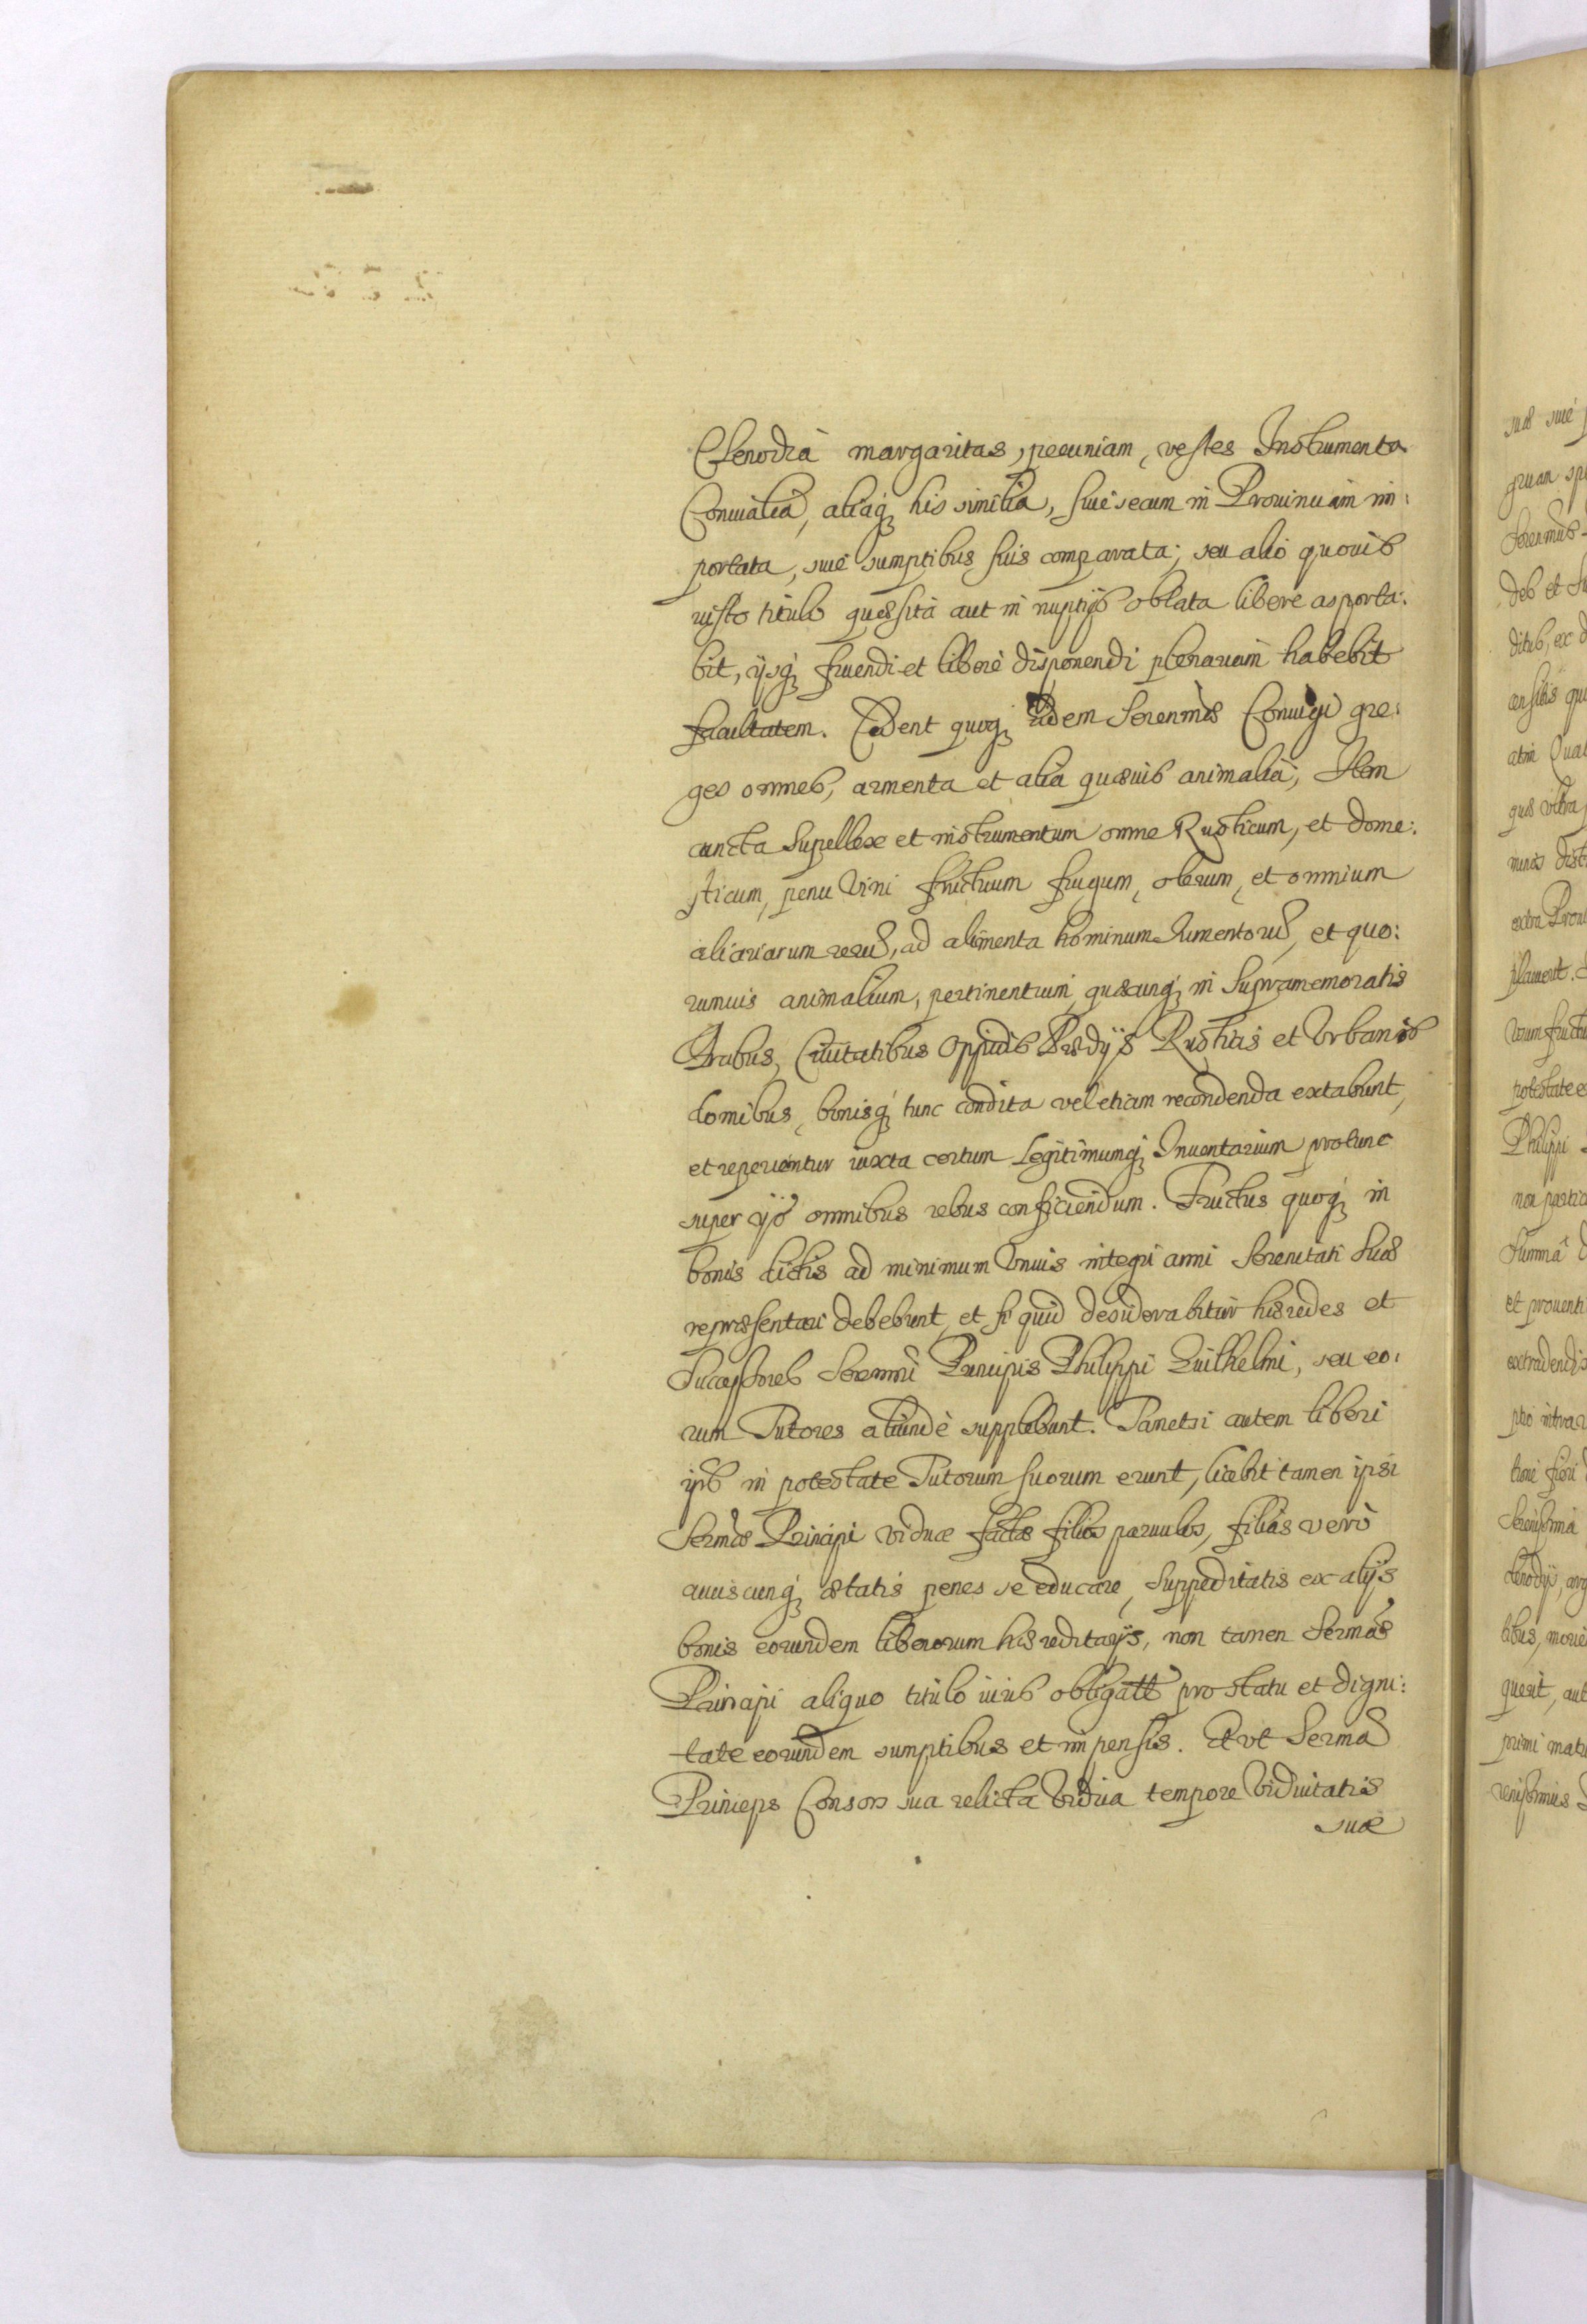 Clenodia margaritas, pecuniam, vestes Instrumenta
Conuiualia, aliaq́ his similia, siue secum in Prouinciam im:
portata, siue sumptibus suis comparata; seu alio quouis
iusto titulo quæsita aut in nuptijs oblata libere asporta:
bit, ijsq́ fruendi et liberè disponendi plenariam habebit
facultatem. Cedent quoq́ eidem Serenmæ Coniugi gre:
ges omnes, armenta et alia quæuis animalia, Item
cuncta Supellex et instrumentum omne Rusticum, et dome:
sticum, penu Vini fructuum frugum, olerum, et omnium
aliarum rerū, ad alimenta hominum Iumentorū, et quo:
rumuis animalium, pertinentium quæcunq́ in Supramemoratis
Arcibus, Ciuitatibus Oppidis Prædijs Rusticis et Vrbanis
domibus, bonisq́ tunc condita vel etiam recondenda extabunt,
et reperientur iuxta certum Legitimumq́ Inuentarium protunc
super ijs omnibus rebus conficiendum. Fructus quoq́ in
bonis dictis ad minimum Vnius integri anni Serenitati Suæ
repræsentari debebunt, et si quid desiderabitur hæredes et
Successores Serenmi Principis Philippi Guilhelmi, seu eo:
rum Tutores aliundè supplebunt. Tametsi autem liberi
ipsi in potestate Tutorum suorum erunt, licebit tamen ipsi
Sermæ Principi viduæ factæ filios paruulos, filias verò
cuiuscunq́ ætatis penes se educare, Suppeditatis ex alijs
bonis eorundem liberorum hæreditarijs, non tamen Sermæ
Principi aliquo titulo iuris obligatis pro statu et digni:
tate eorundem sumptibus et impensis. Et vt Serma
Princeps Consors sua relicta Vidua tempore Viduitatis
suæ